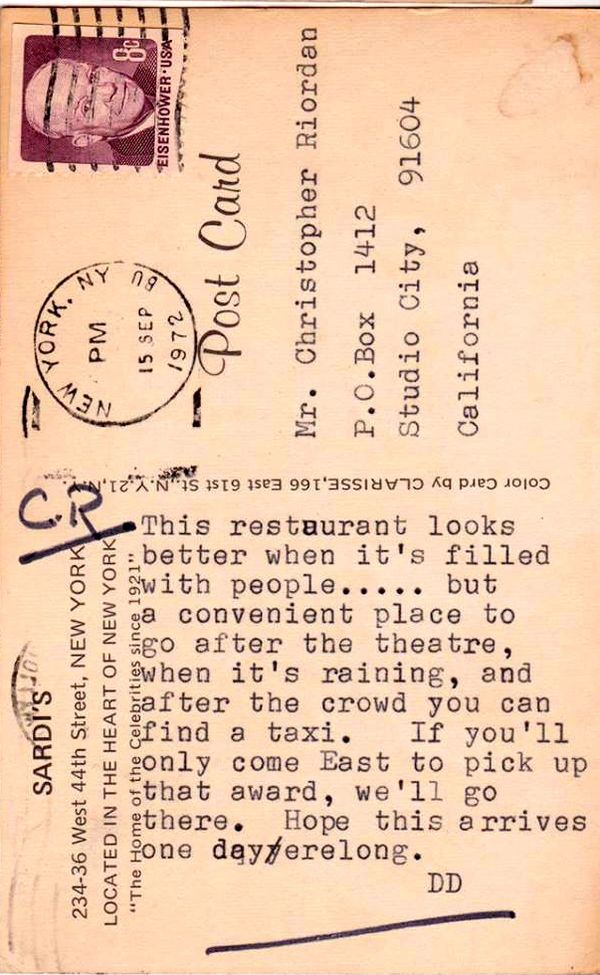 8c
EISENHOWER·USA
NEW YORK, NY
PM
15 SEP
1972
Post Card
Mr. Christopher Riordan
P.O.Box 1412
Studio City, 91604
California
Color Card by CLARISSE, 166 East 61st St., N.Y. 21, N.
C.R
SARDI'S
234-36 West 44th Street, NEW YORK
LOCATED IN THE HEART OF NEW YORK
"The Home of the Celebrities since 1921"
This restaurant looks
better when it's filled
with people..... but
a convenient place to
go after the theatre,
when it's raining, and
after the crowd you can
find a taxi. If you'll
only come East to pick up
that award, we'll go
there. Hope this arrives
one day/erelong.
DD